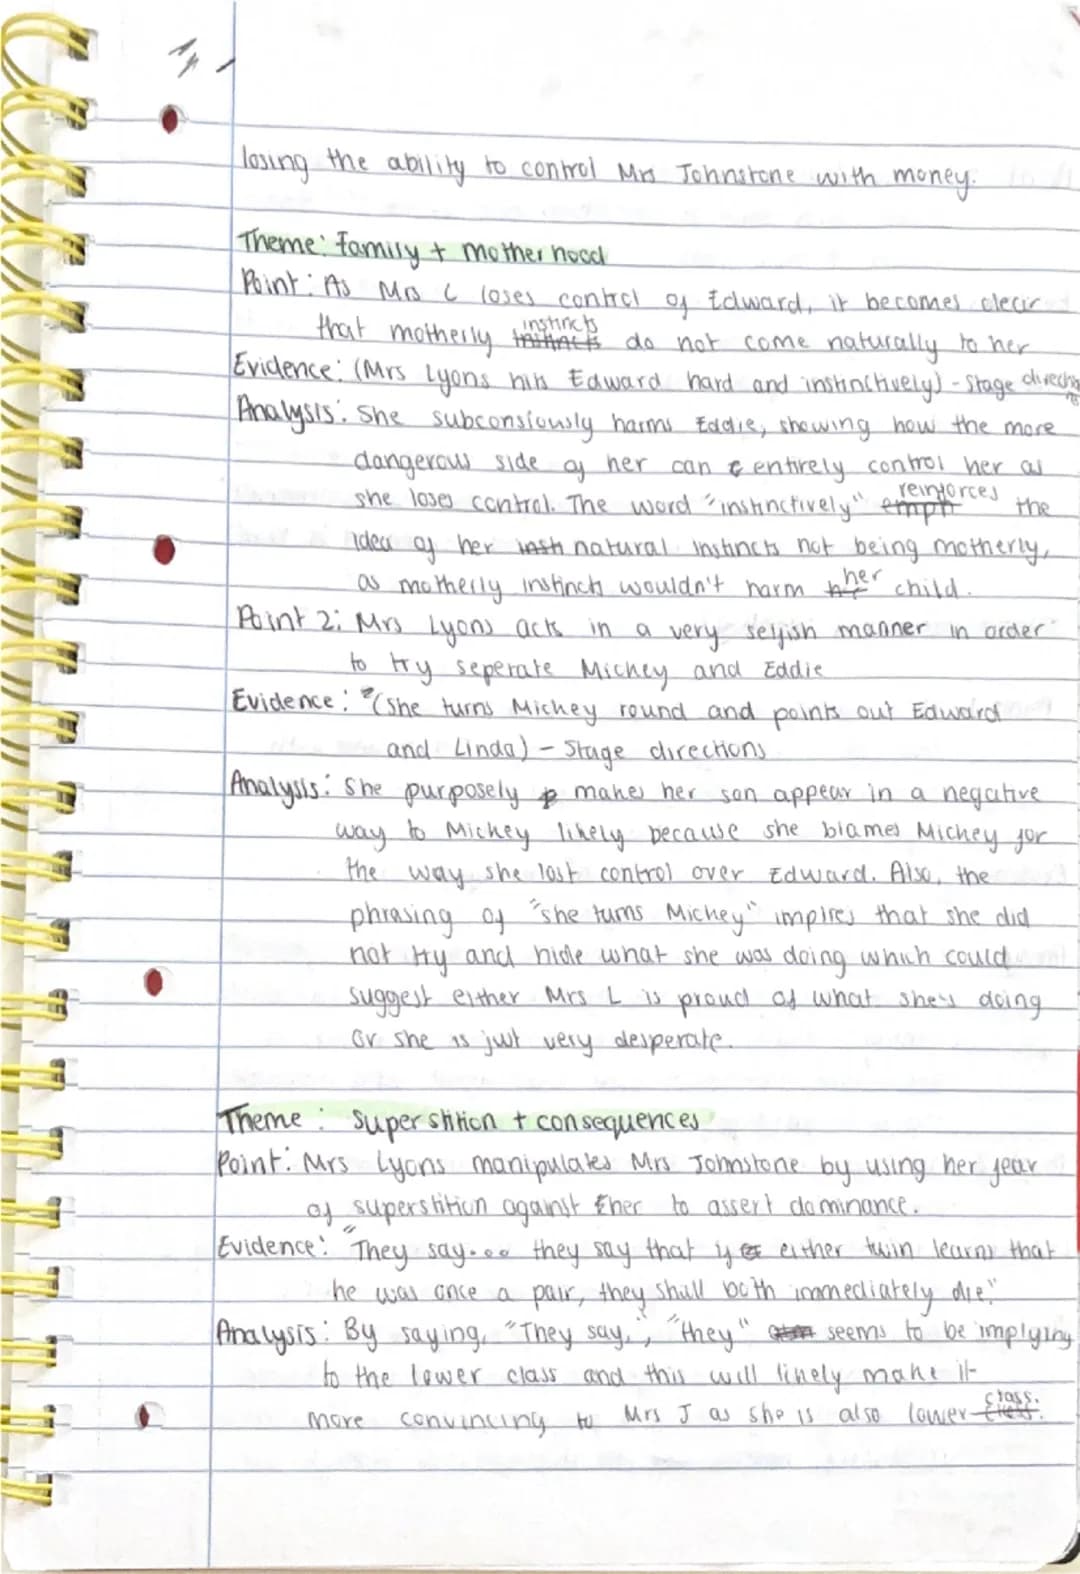 losing the ability to control Mrs Johnstone with money.
Theme: family + motherhood
Point: As Mrs L loses control of Edward, it becomes clear
that motherly instincts do not come naturally to her
Evidence: (Mrs Lyons hits Edward hard and instinctively) - Stage directions
Analysis: She subconsiously harms Eddie, showing how the more
dangerous side of her can entirely control her as
she loses control. The word "instinctively" reinforces the
idea of her natural instincts not being motherly,
as motherly instincts wouldn't harm her child.
Point 2: Mrs Lyons acts in a very selfish manner in order
to try seperate Mickey and Eddie
Evidence: "(She turns Mickey round and points out Edward
and Linda) - Stage directions
Analysis: She purposely makes her son appear in a negative
way to Mickey likely because she blames Mickey for
the way she lost control over Edward. Also, the
phrasing of "she turns Mickey" implies that she did
not try and hide what she was doing which could
suggest either Mrs L is proud of what she's doing
or she is just very desperate.
Theme: Superstition + consequences
Point: Mrs Lyons manipulates Mrs Johnstone by using her fear
of superstition against her to assert dominance.
Evidence: "They say... they say that if either twin learns that
he was once a pair, they shall both immediately die."
Analysis: By saying, "They say,", "they" seems to be implying
to the lower class and this will likely make it
more convincing to Mrs J as she is also lower class.